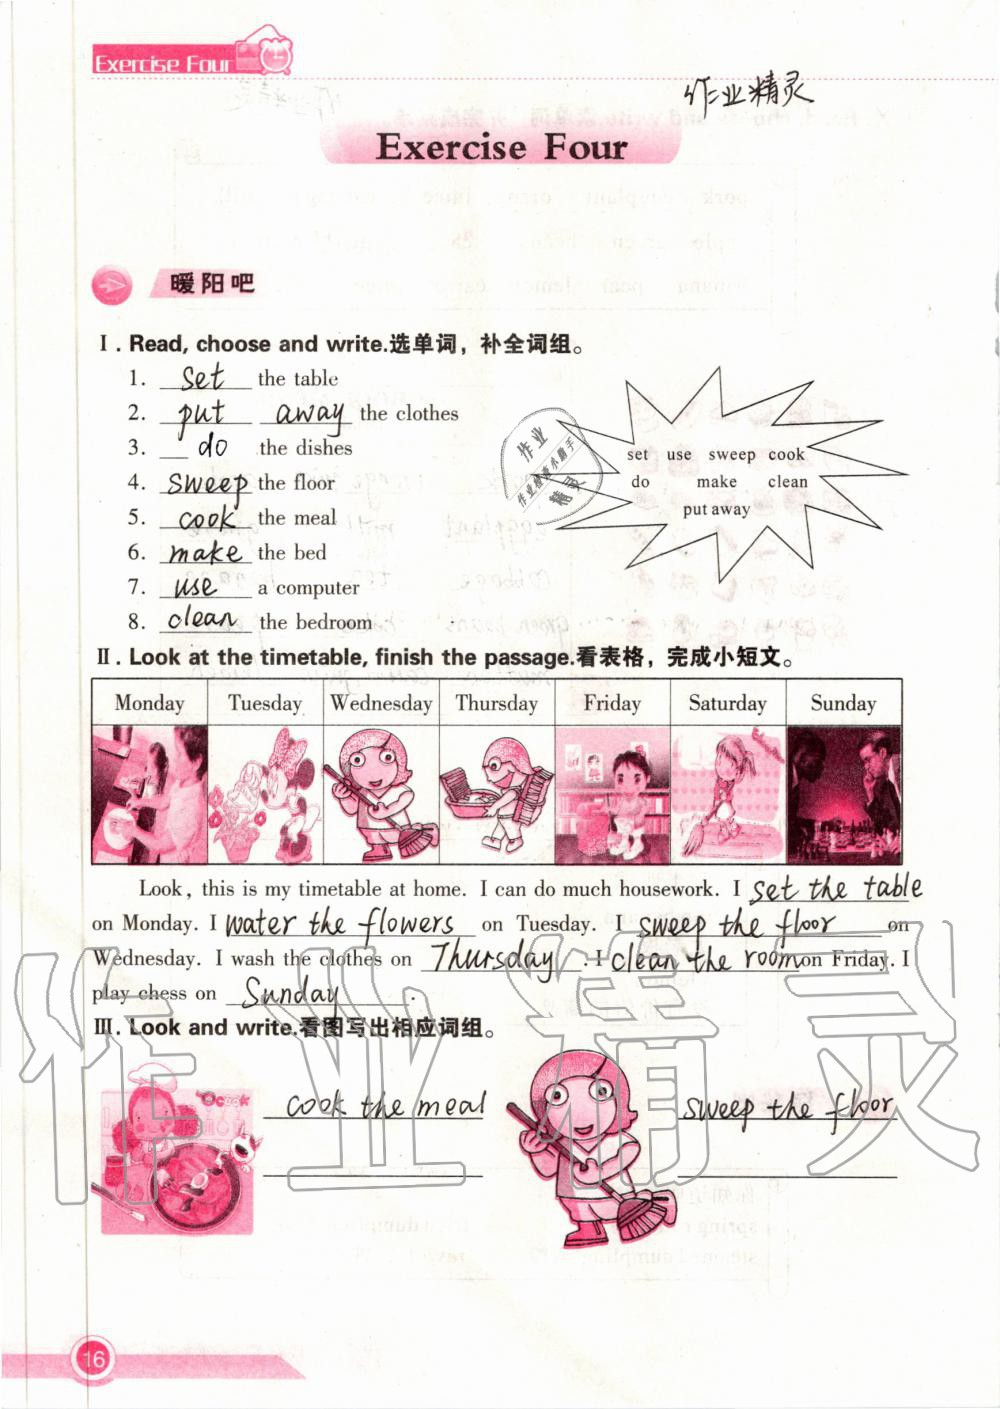 Exercise Four
作业精灵
Exercise Four
暖阳吧
Ⅰ. Read, choose and write.选单词，补全词组。
1. set the table
2. put away the clothes
3. do the dishes
4. sweep the floor
5. cook the meal
6. make the bed
7. use a computer
8. clean the bedroom
set use sweep cook
do make clean
put away
作业
作业检查小助手
精灵
Ⅱ. Look at the timetable, finish the passage.看表格，完成小短文。
Monday Tuesday Wednesday Thursday Friday Saturday Sunday
Look, this is my timetable at home. I can do much housework. I set the table
on Monday. I water the flowers on Tuesday. I sweep the floor on
Wednesday. I wash the clothes on Thursday. I clean the room on Friday. I
play chess on Sunday.
Ⅲ. Look and write.看图写出相应词组。
cook
cook the meal
sweep the floor
作业精灵
16